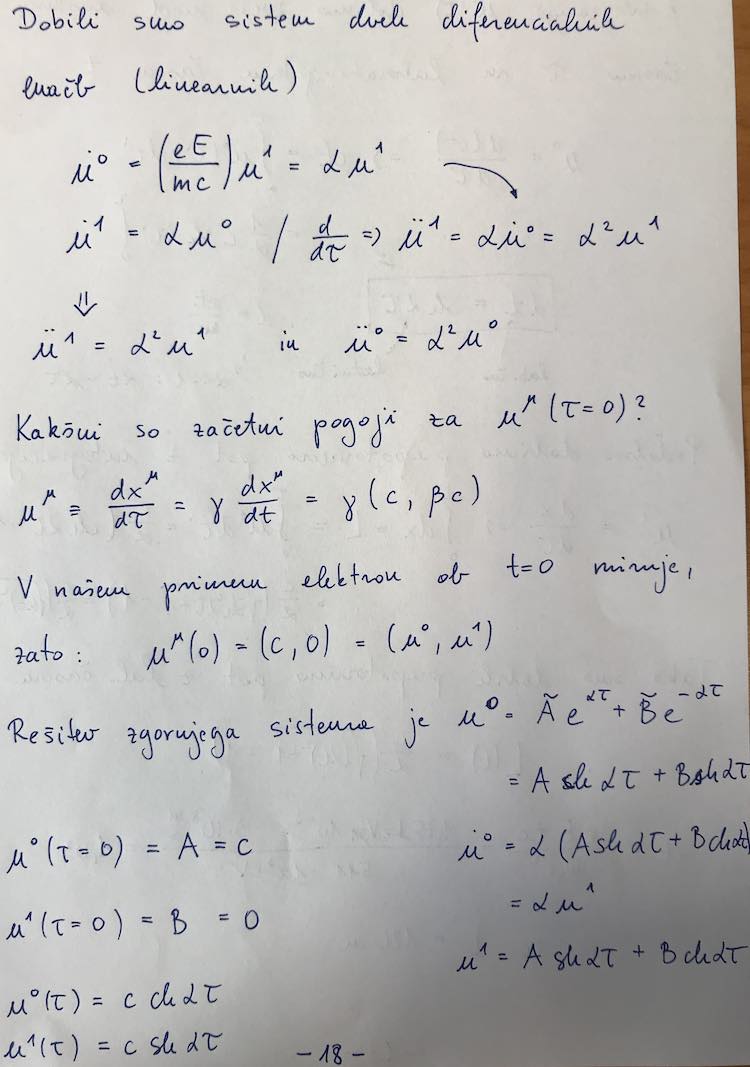 Dobili smo sistem dveh diferencialnih
enačb (linearnih)
u̇⁰ = (eE/mc) u¹ = αu¹
u̇¹ = αu⁰ / d/dτ => ü¹ = αu̇⁰ = α²u¹
⇓
ü¹ = α²u¹ in ü⁰ = α²u⁰
Kakšni so začetni pogoji za u^μ(τ=0)?
u^μ ≡ dx^μ/dτ = γ dx^μ/dt = γ(c, βc)
V našem primeru elektron ob t=0 miruje,
zato: u^μ(0) = (c, 0) = (u⁰, u¹)
Rešitev zgornjega sistema je u⁰ = Ãe^ατ + B̃e^-ατ
= A ch ατ + B sh ατ
u⁰(τ=0) = A = c
u̇⁰ = α (A sh ατ + B ch ατ)
= αu¹
u¹(τ=0) = B = 0
u¹ = A sh ατ + B ch ατ
u⁰(τ) = c ch ατ
u¹(τ) = c sh ατ
-18-